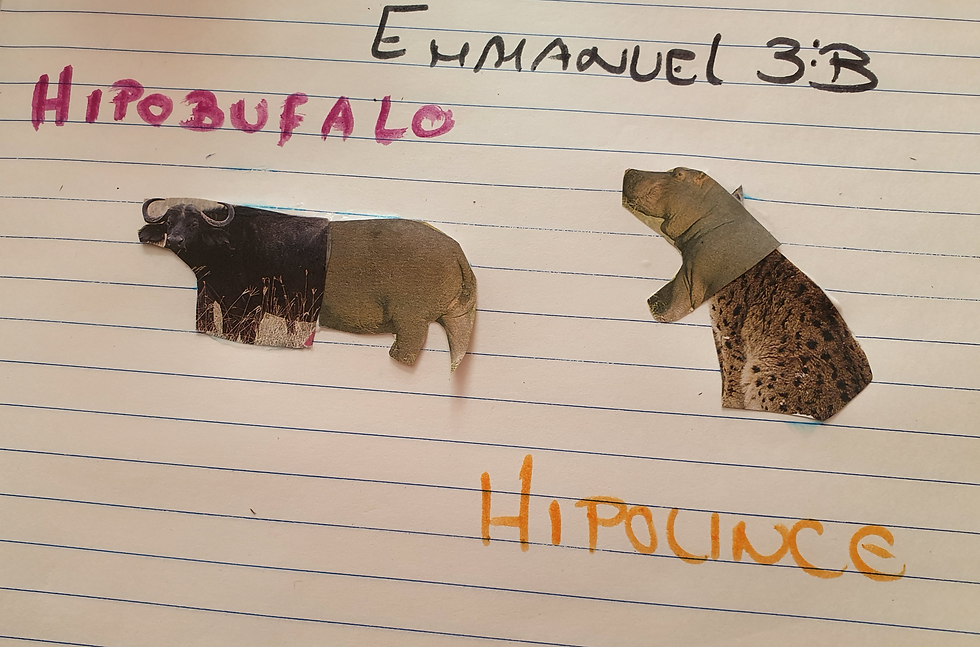 EMMANUEl 3:B
HIPOBUFALO
HIPOLINCE